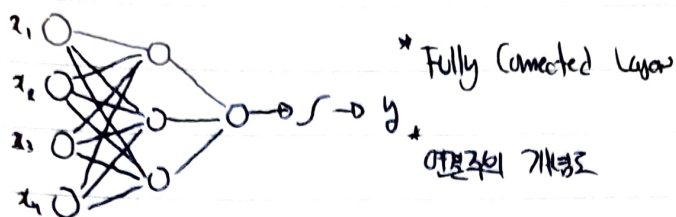 x₁
x₂
x₃
x₄
∫ → y
* Fully Connected Layer
* 연결주의 개념도